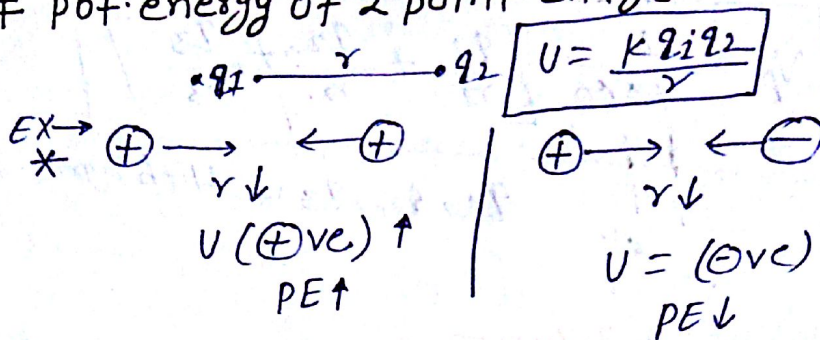 pot. energy of 2 point
• q1 •——r——• q2 U = K q1 q2 / r
EX→ ⊕ → ← ⊕ ⊕ → ← ⊖
* r↓ r↓
U (⊕ve) ↑ U = (⊖ve)
PE↑ PE↓